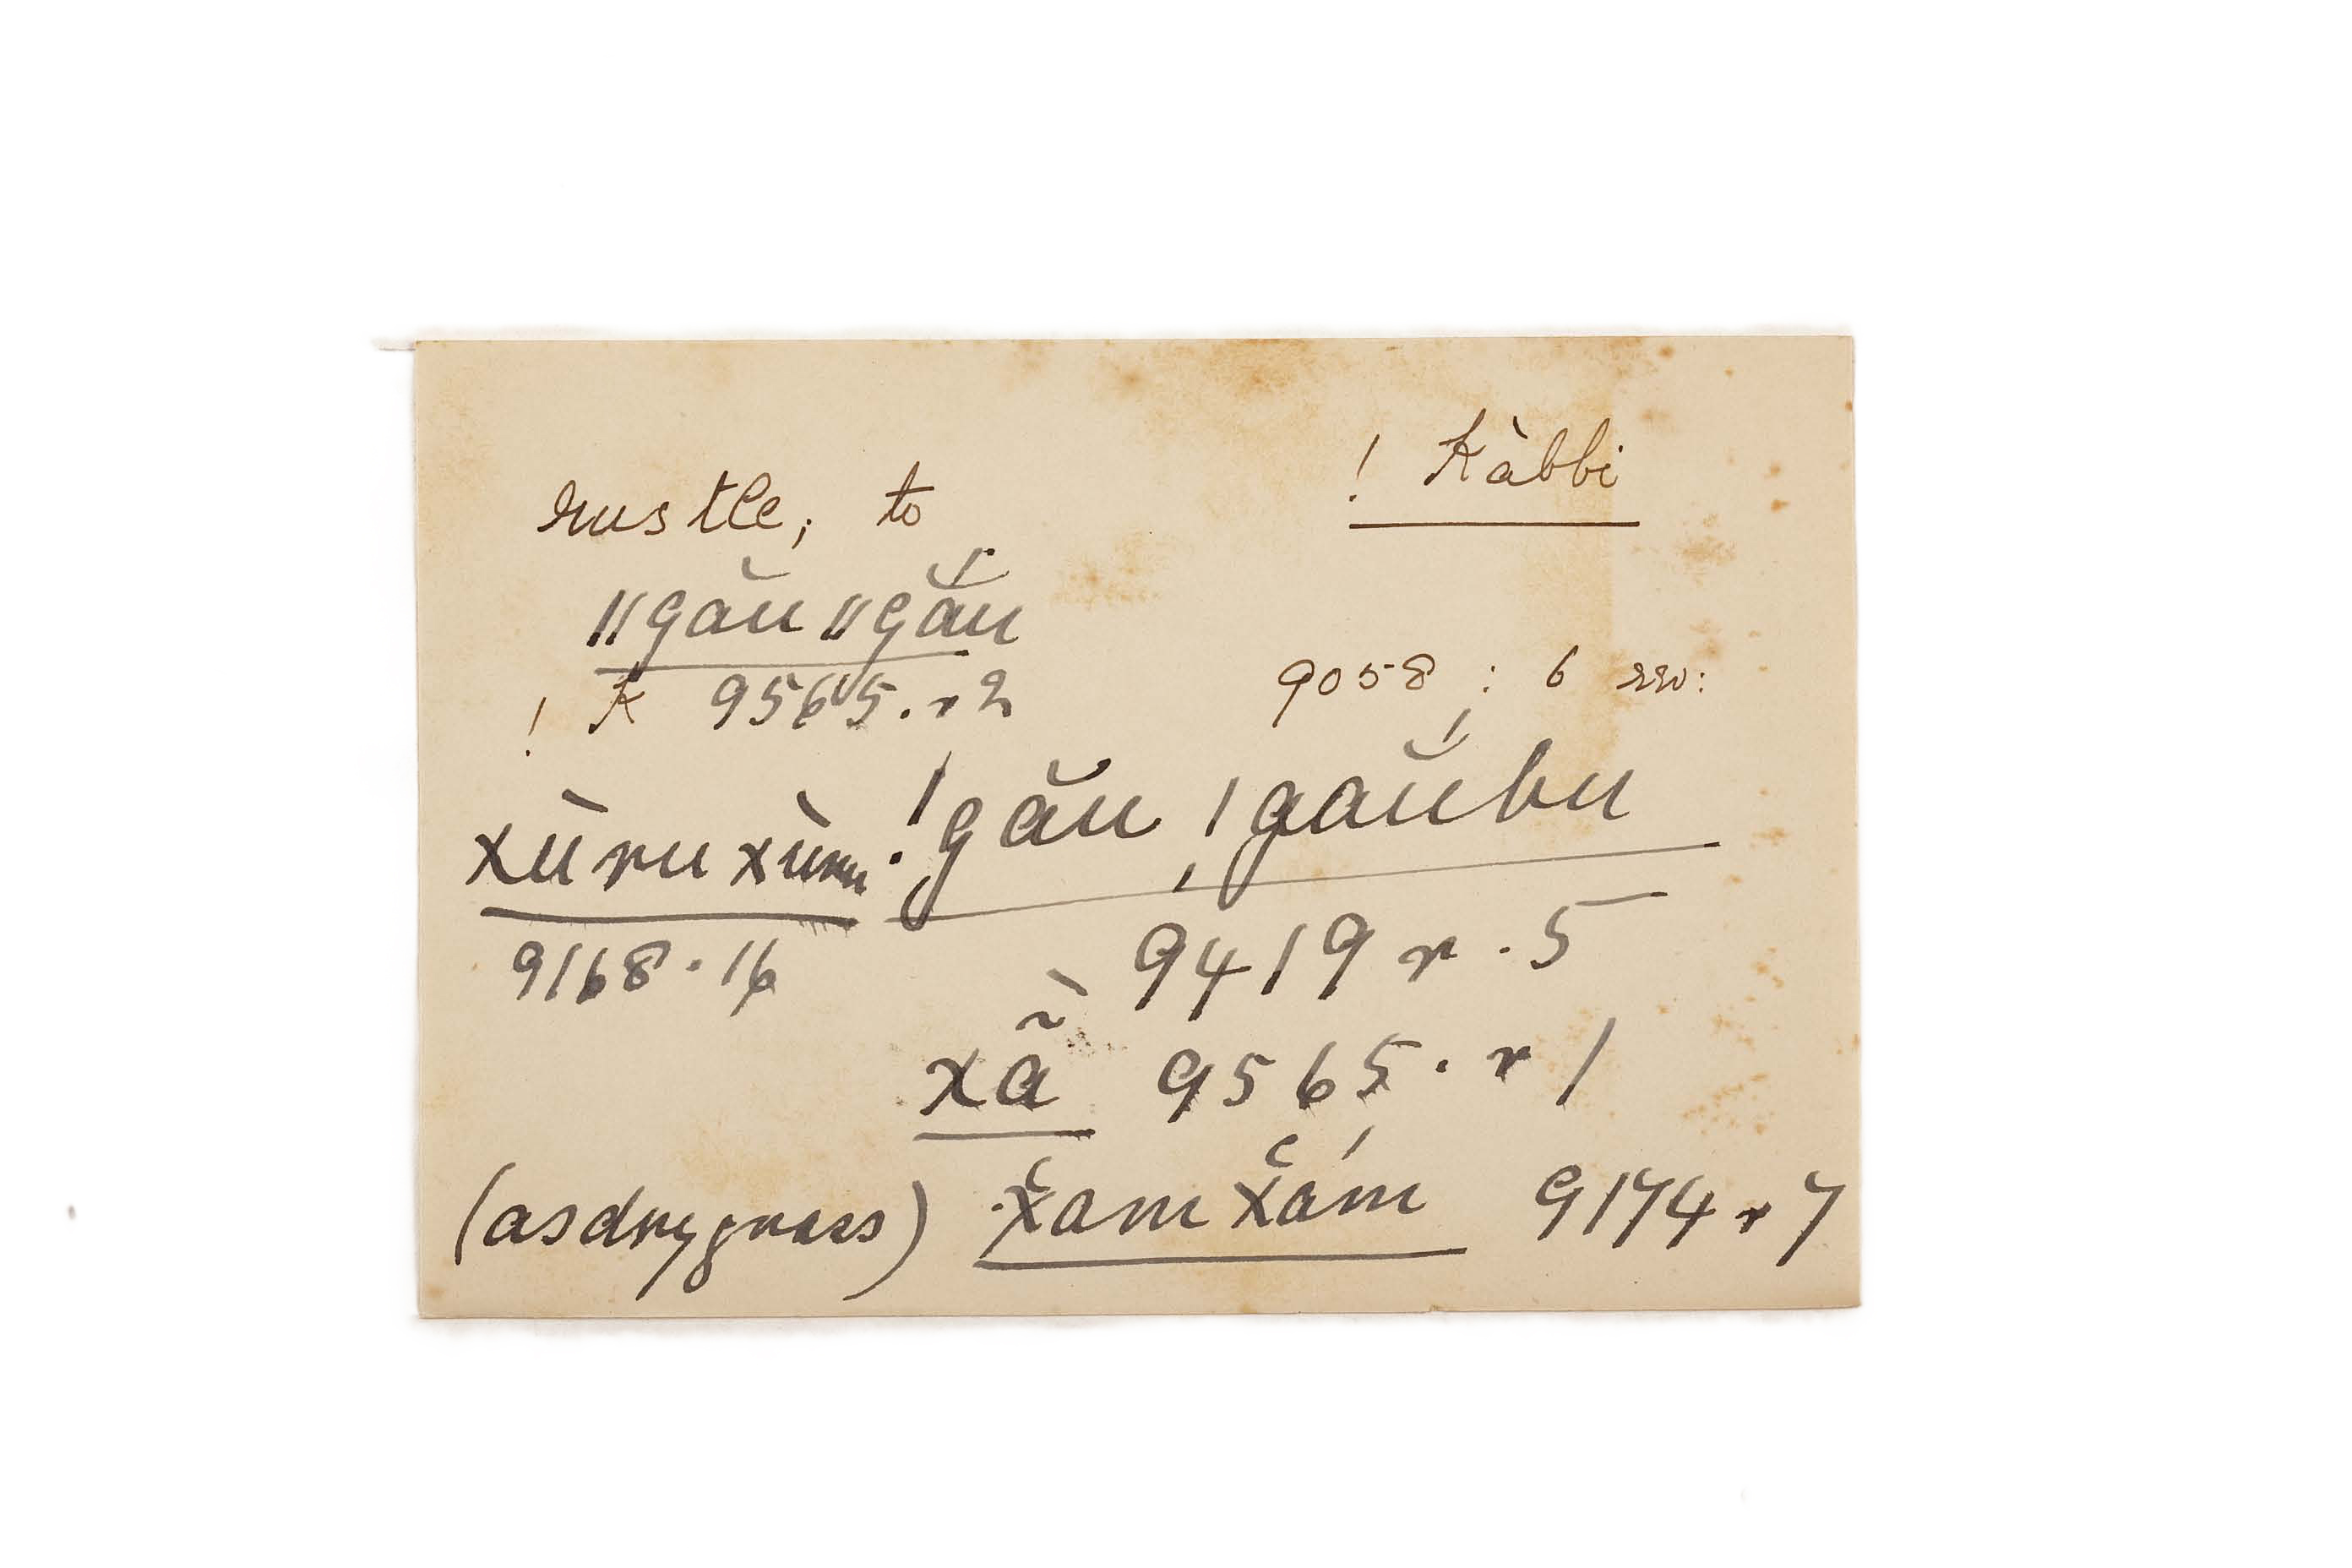 ! kàbbi
rustle, to
ǁgău ǁgắu
! k 9565. r 2
9058 : 6 rev:
xùru xùru
!gău !gaŭ́bu
9168 . 16
9419 r . 5
xã̀ 9565 . r 1
(as dry grass) x̌am x̌ám 9174 r 7